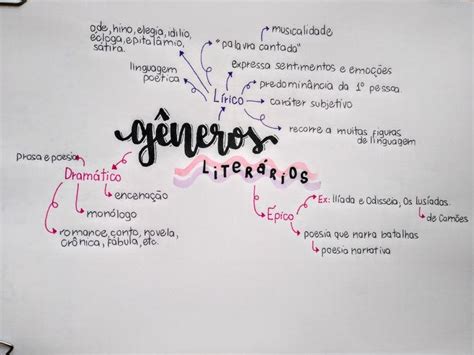 ode, hino, elegia, idílio,
écloga, epitalâmio,
sátira.
musicalidade
"palavra cantada"
expressa sentimentos e emoções
linguagem
poética
predominância da 1º pessoa.
Lírico
caráter subjetivo
recorre a muitas figuras
de linguagem
gêneros
LITERÁRIOS
prosa e poesia
Dramático
encenação
monólogo
romance, conto, novela,
crônica, fábula, etc.
Épico
Ex: Ilíada e Odisseia, Os Lusíadas.
de Camões
poesia que narra batalhas
poesia narrativa